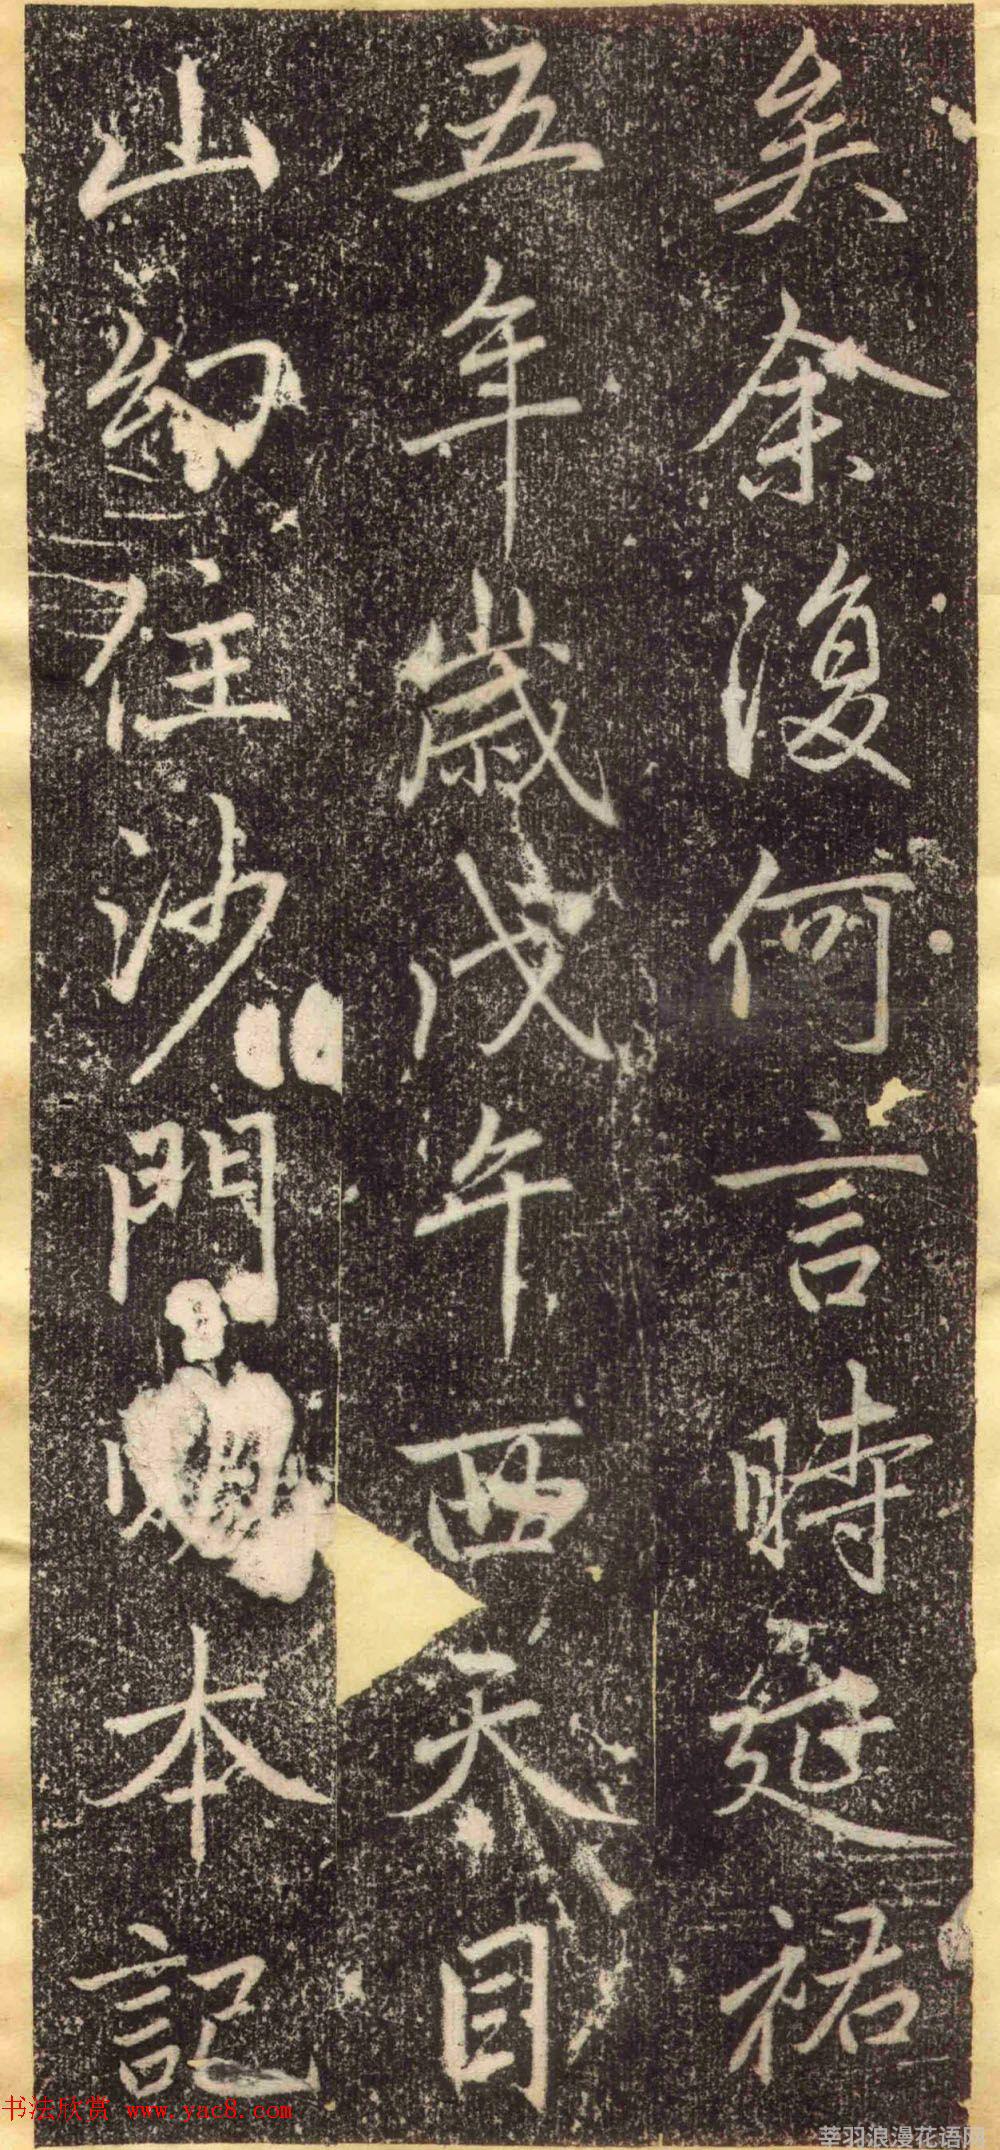 矣余復何言時延祐
五年歲戊午西天目
山幻住沙門本記
书法欣赏 www.yac8.com
莘羽浪漫花语网